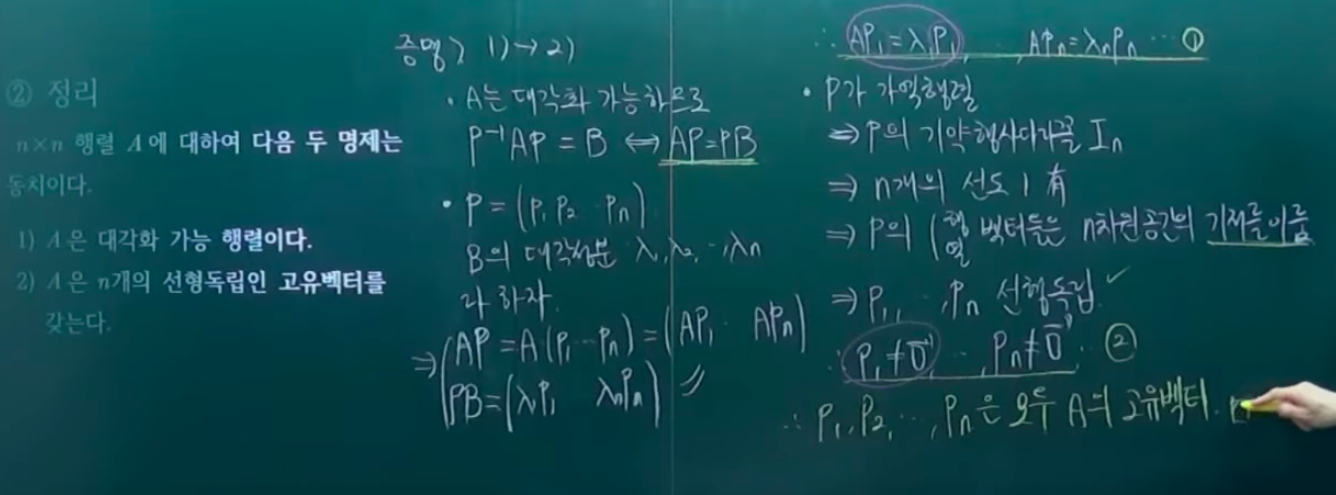 ② 정리
n×n 행렬 A에 대하여 다음 두 명제는
동치이다.
1) A은 대각화 가능 행렬이다.
2) A은 n개의 선형독립인 고유벡터를
갖는다.
증명> 1)→2)
· A는 대각화 가능하므로
P⁻¹AP = B ↔ AP=PB
· P = (P₁ P₂ ⋯ Pₙ)
B의 대각성분 λ₁, λ₂, ⋯, λₙ
라 하자.
⇒ AP = A(P₁ ⋯ Pₙ) = (AP₁ ⋯ APₙ)
PB = (λ₁P₁ λₙPₙ)
∴ AP₁=λ₁P₁, ⋯ APₙ=λₙPₙ ⋯ ①
· P가 가역행렬
⇒ P의 기약행사다리꼴 Iₙ
⇒ n개의 선도 1 有
⇒ P의 (행 열 벡터들은 n차원공간의 기저를 이룸
⇒ P₁, ⋯, Pₙ 선형독립. ✓
∴ P₁≠0⃗, ⋯, Pₙ≠0⃗ ②
∴ P₁, P₂, ⋯, Pₙ은 모두 A의 고유벡터.